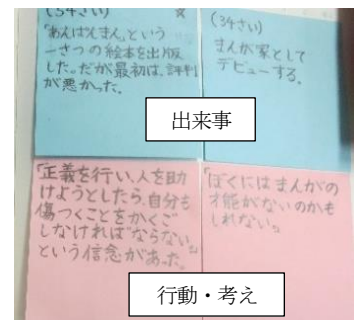 (54さい)
「あんぱんまん」という
一さつの絵本を出版
した。だが最初は、評判
が悪かった。
(34さい)
まんが家として
デビューする。
出来事
「正義を行い、人を助
けようとしたら、自分も
傷つくことをかくご
しなければならない。」
という信念があった。
「ぼくにはまんがの
才能がないのかも
しれない。」
行動・考え